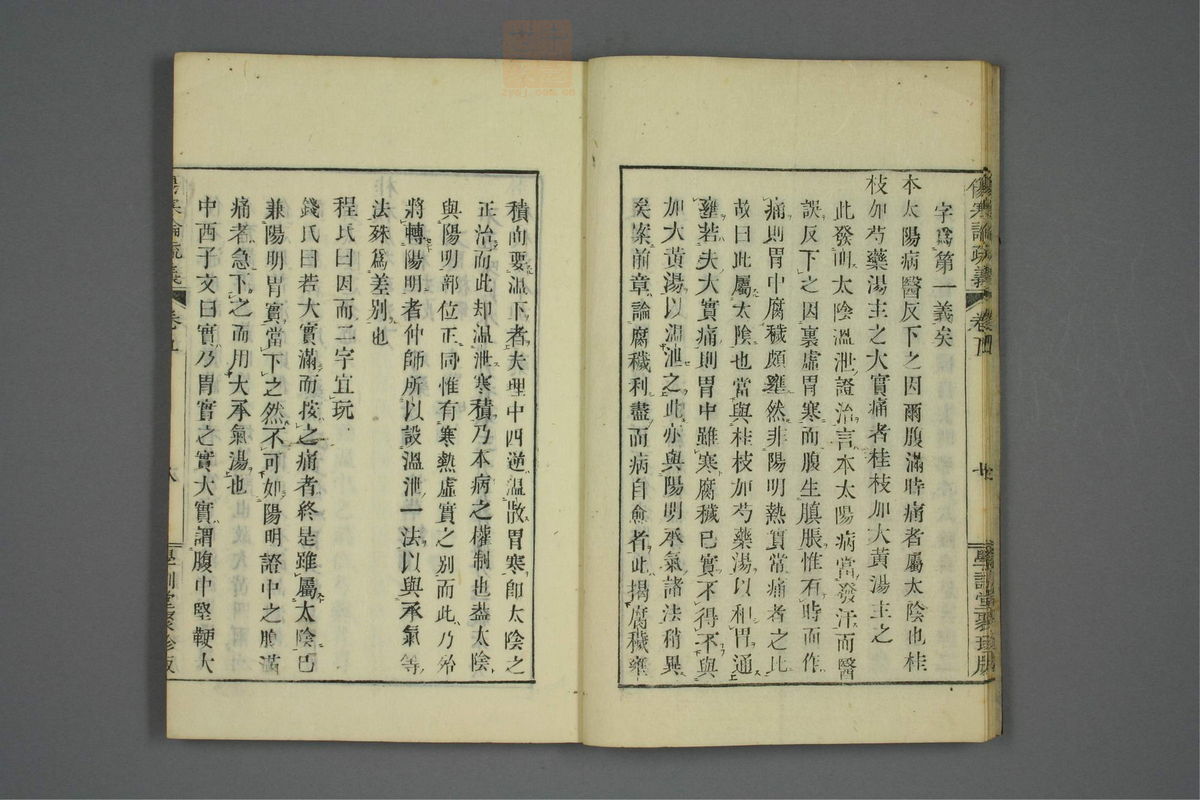 字爲第一義矣
本太陽病醫反下之因爾腹滿時痛者屬太陰也桂
枝加芍藥湯主之大實痛者桂枝加大黃湯主之
此發明太陰溫泄證治言本太陽病當發汗而醫
誤反下之因裏虛胃寒而腹生䐜脹惟有時而作
痛則胃中腐穢頗壅然非陽明熱實當痛者之比
故曰此屬太陰也當與桂枝加芍藥湯以和胃通
壅若夫大實痛則胃中雖寒腐穢已實不得不與
加大黃湯以溫泄之此亦與陽明承氣諸法稍異
矣案前章論腐穢利盡而病自愈者此揭腐穢壅
積尚要溫下者夫理中四逆溫散胃寒卽太陰之
正治而此却溫泄寒積乃本病之權制也蓋太陰
與陽明部位正同惟有寒熱虛實之別而此乃殆
將轉陽明者仲師所以設溫泄一法以與承氣等
法殊爲差別也
程氏曰因而二字宜玩
錢氏曰若大實滿而按之痛者終是雖屬太陰已
兼陽明胃實當下之然不可如陽明證中之腹滿
痛者急下之而用大承氣湯也
中西子文曰實乃胃實之實大實謂腹中堅鞕大
傷寒論疏義
卷五
學訓堂聚珍版